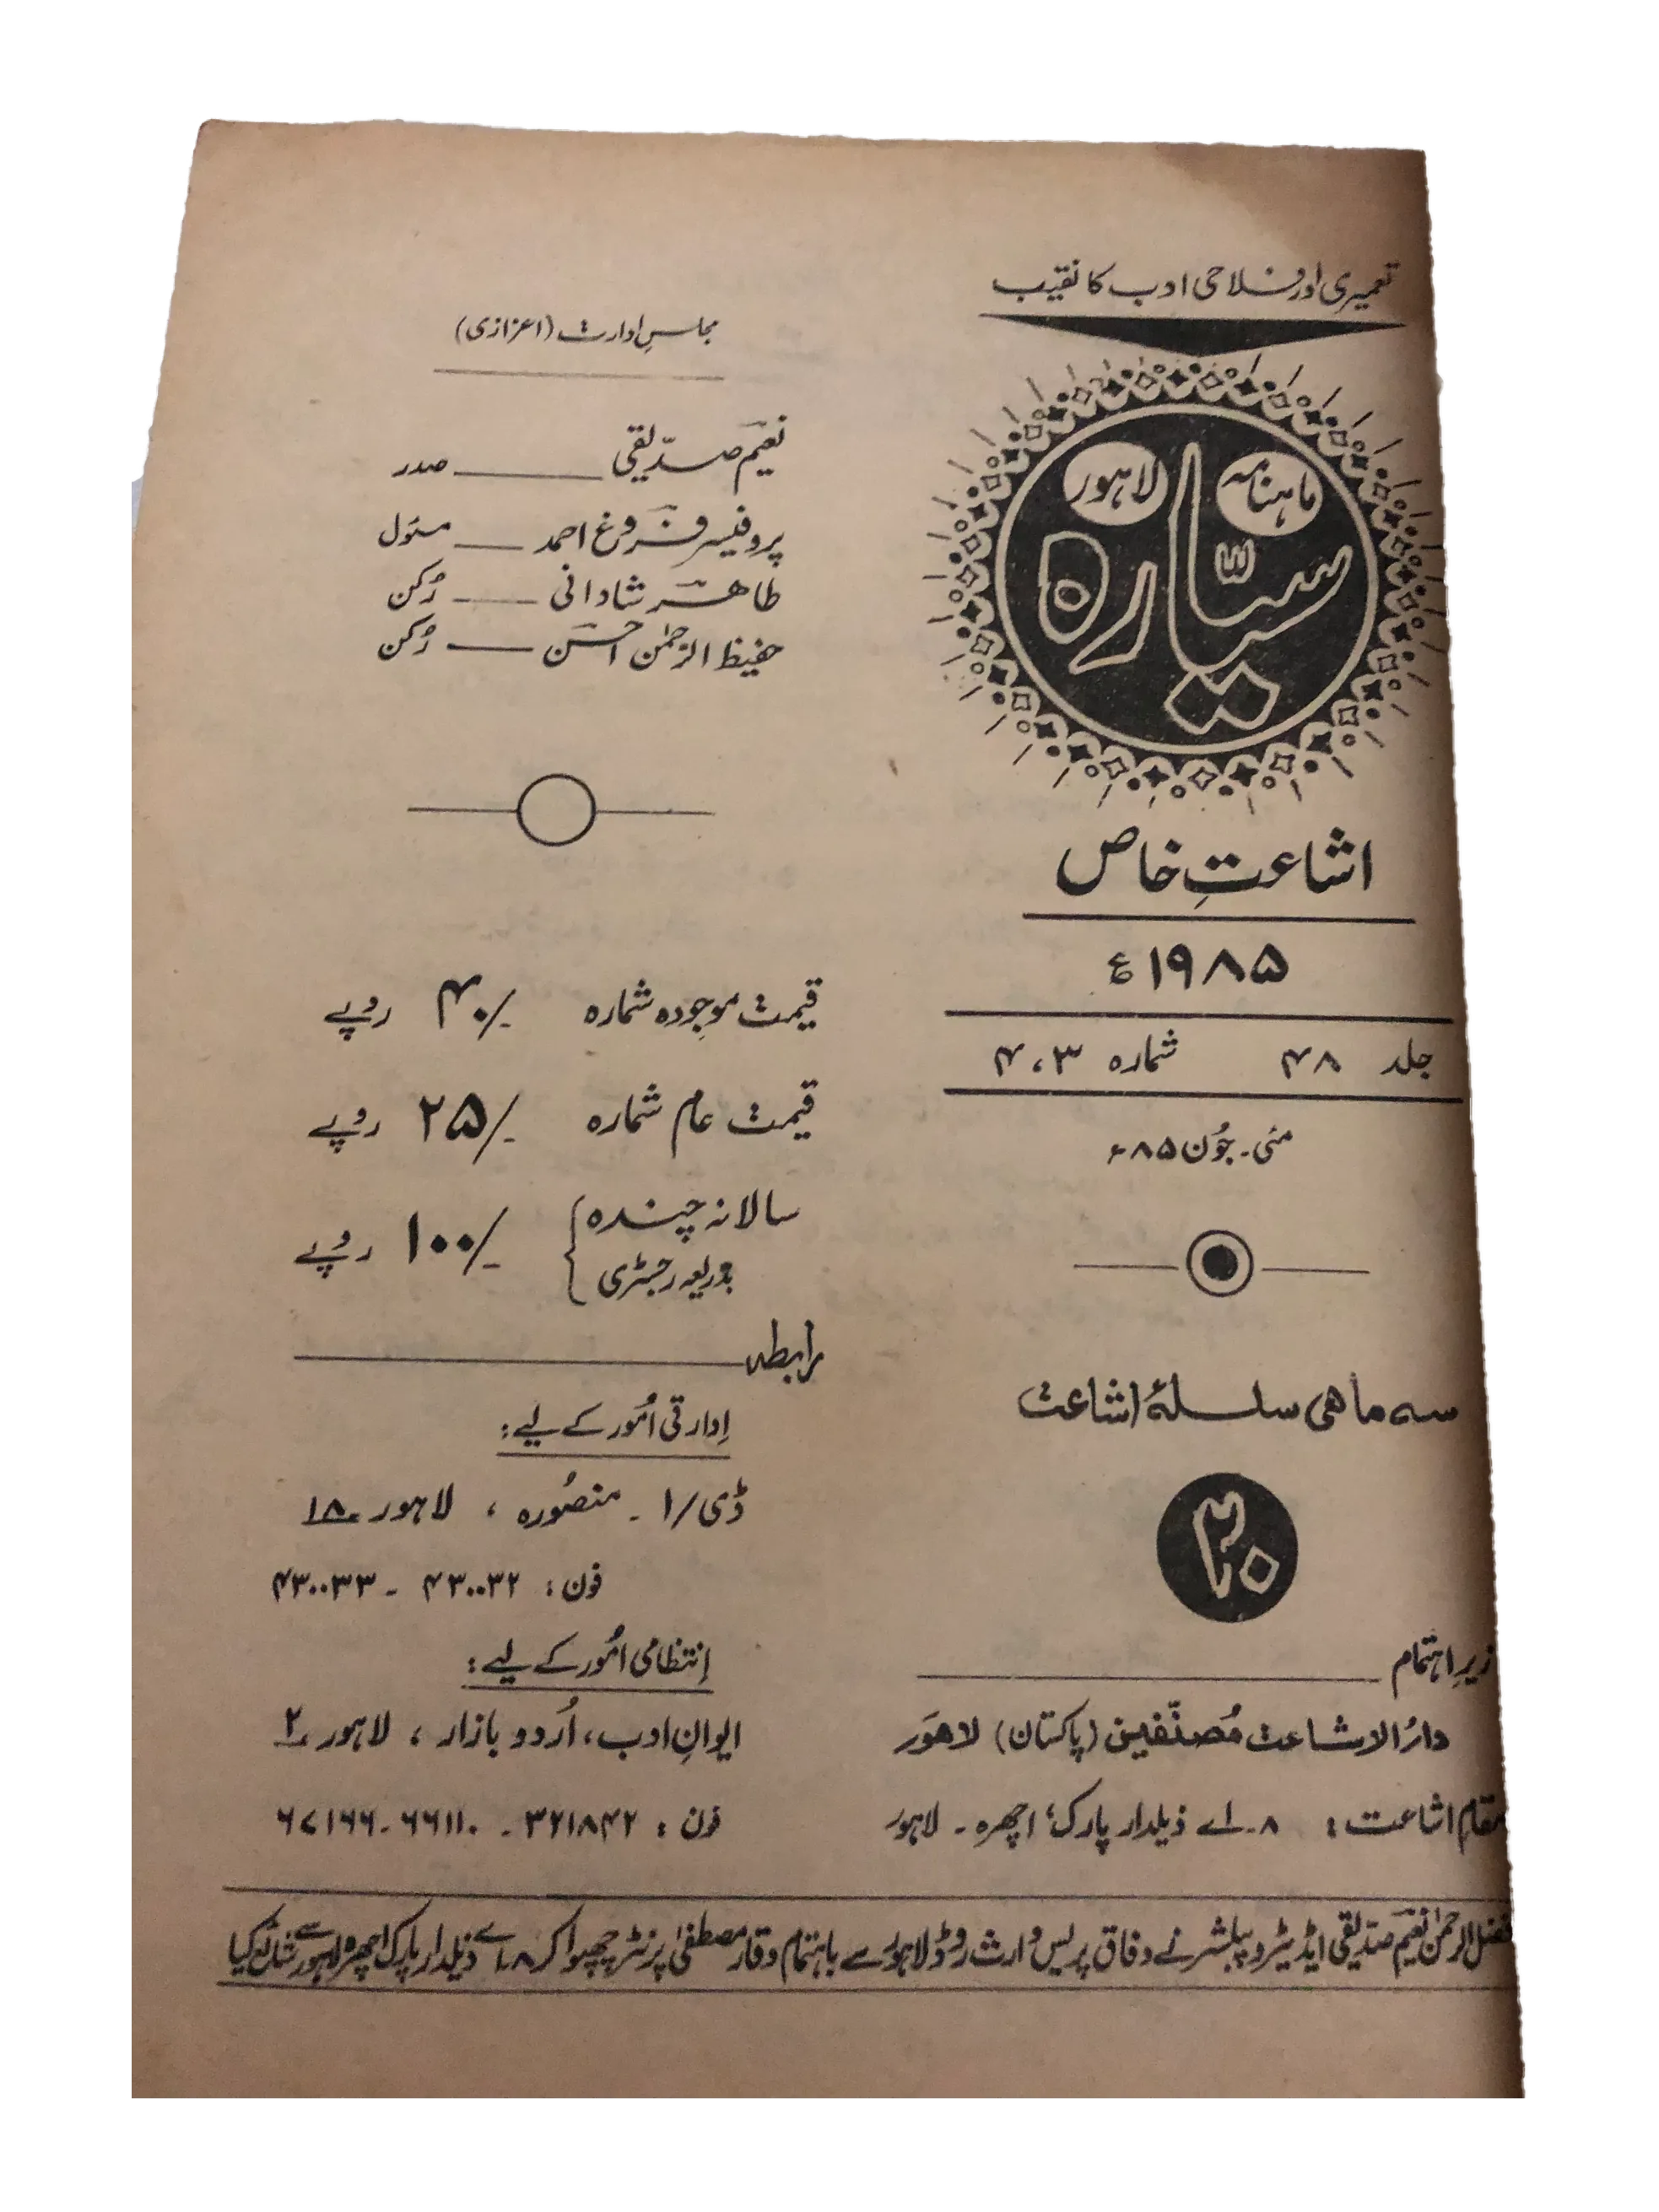 تعمیری اور فلاحی ادب کا نقیب
ماہنامہ
لاہور
سیّارہ
اشاعتِ خاص
۱۹۸۵ء
جلد ۴۸ شمارہ ۳، ۴
مئی۔ جُون ۸۵ء
سہ ماہی سلسلۂ اشاعت
۲۰
زیرِ اہتمام
دارُ الاشاعت مُصنّفین (پاکستان) لاہور
مقامِ اشاعت: ۸۔اے ذیلدار پارک، اچھرہ۔ لاہور
مجلسِ ادارت (اعزازی)
نعیم صدّیقی ــــ صدر
پروفیسر فروغ احمد ــــ مسئول
طاہر شادانی ــــ رُکن
حفیظ الرحمٰن احسن ــــ رُکن
قیمت موجودہ شمارہ ۴۰/- روپے
قیمت عام شمارہ ۲۵/- روپے
سالانہ چندہ
بذریعہ رجسٹری ۱۰۰/- روپے
رابطہ
اِدارتی اُمور کے لیے:
ڈی/۱۔ منصُورہ، لاہور ۱۸
فون: ۴۳۰۰۳۲ - ۴۳۰۰۳۳
اِنتظامی اُمور کے لیے:
ایوانِ ادب، اُردو بازار، لاہور ۲
فون: ۳۲۱۸۴۲ - ۶۶۱۱۰ - ۶۷۱۶۶
فضل الرحمٰن نعیم صدّیقی ایڈیٹر و پبلشر نے وفاق پریس وارث روڈ لاہور سے باہتمام وقار مصطفیٰ پرنٹر چھپوا کر ۸۔اے ذیلدار پارک اچھرہ لاہور سے شائع کیا